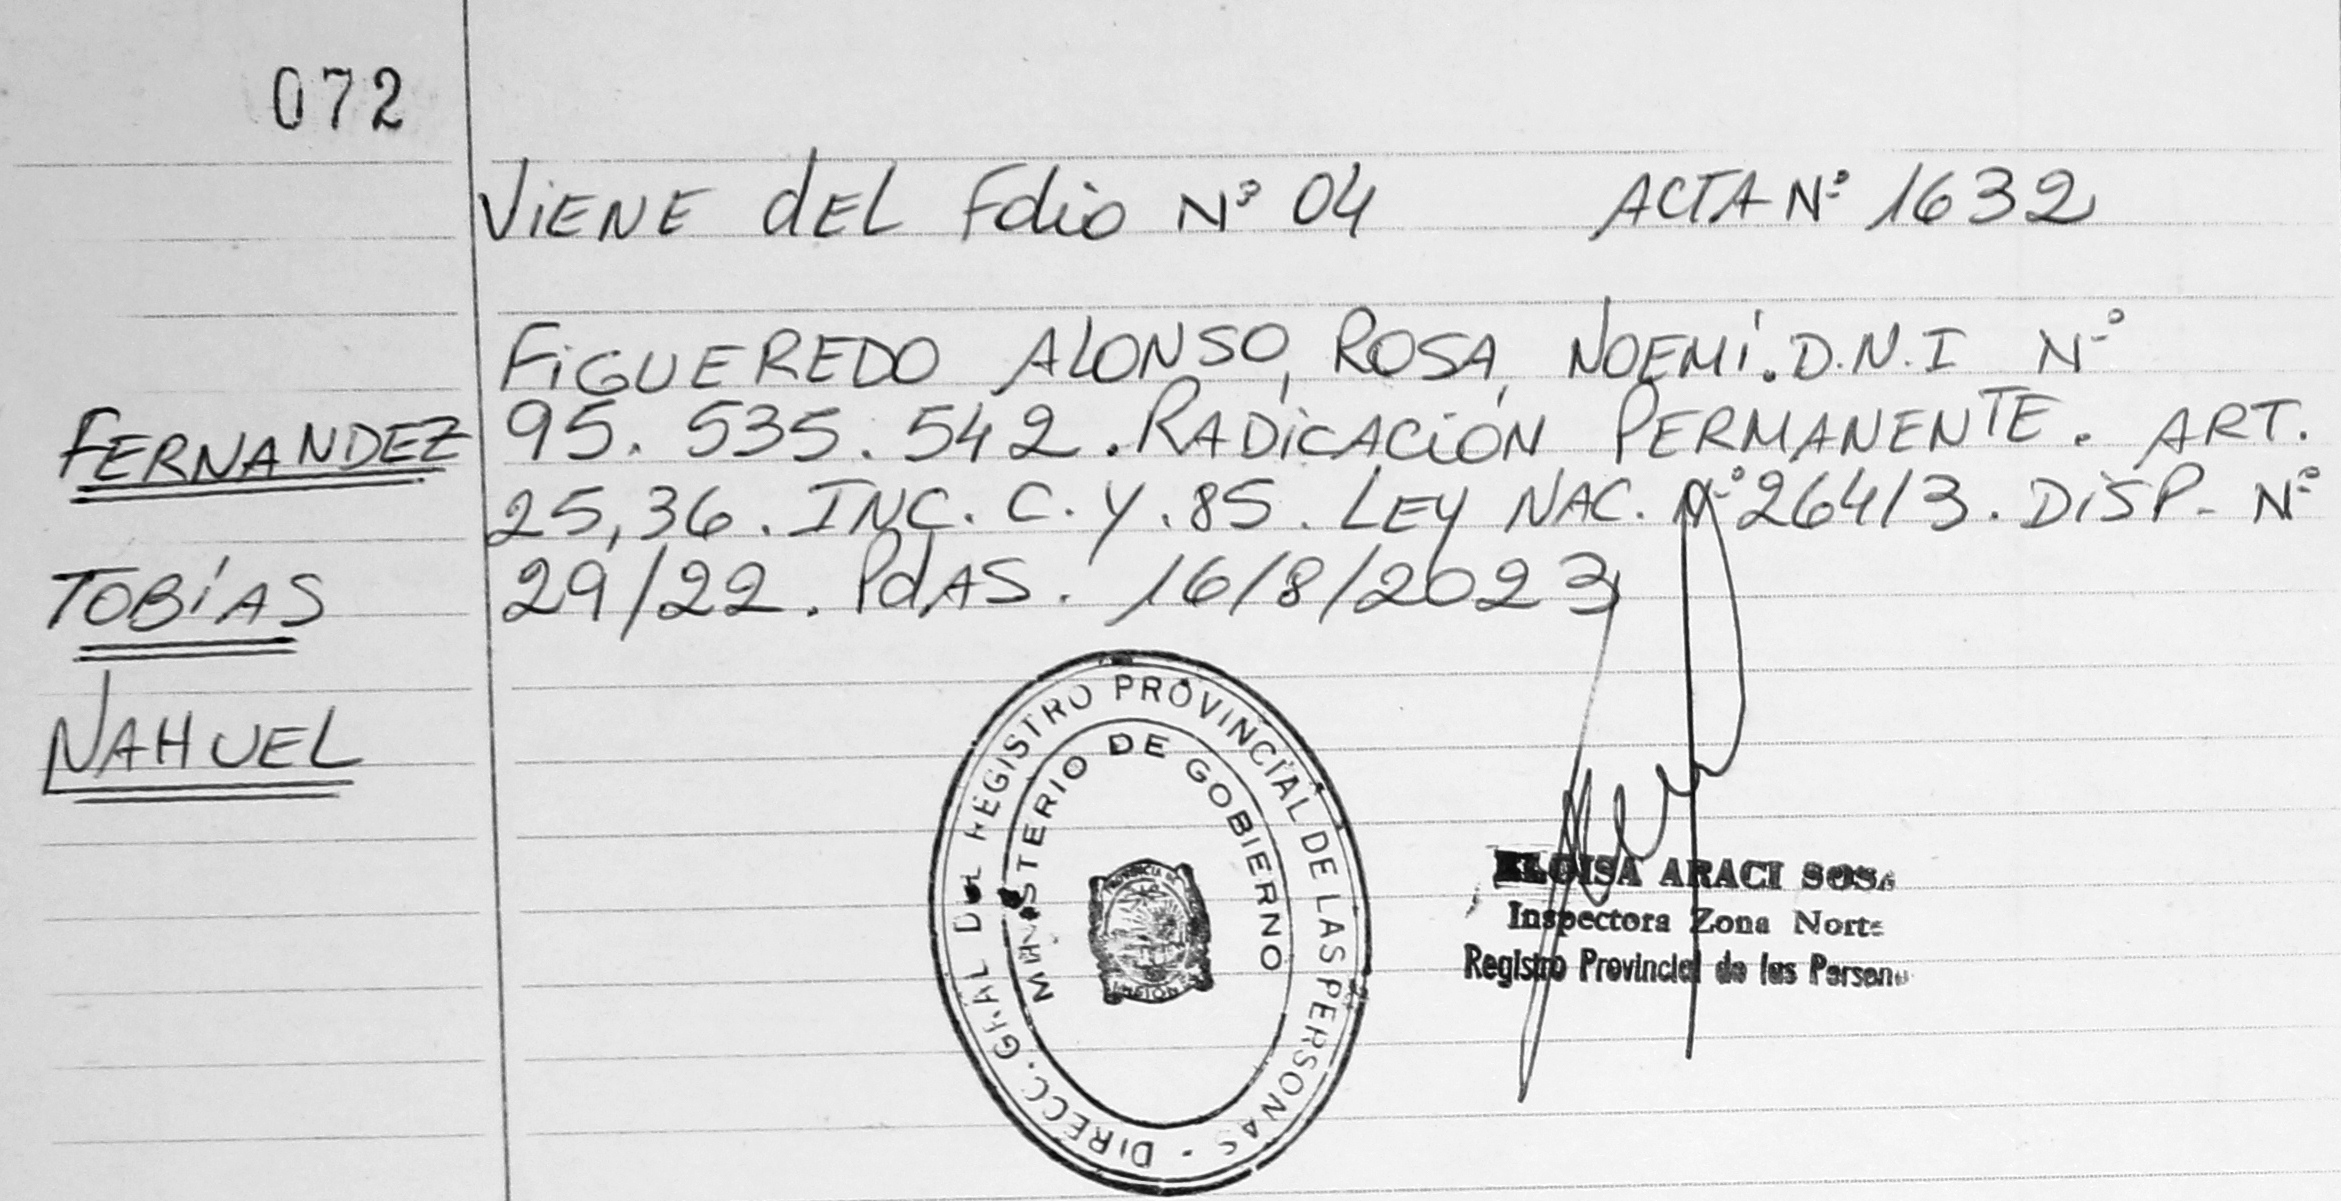 072
ViENE dEL Folio Nº 04 ACTA Nº 1632
FiGUEREDO ALONSO, ROSA, NOEMí. D.N.I Nº
FERNANDEZ 95. 535. 542. RADiCACiÓN PERMANENTE. ART.
25,36. INC. C. Y. 85. LEY NAC. Nº 26413. DiSP- Nº
TOBíAS 29/22. PdAS. 16/8/2023
NAHUEL
DIRECC. GRAL DEL REGISTRO PROVINCIAL DE LAS PERSONAS -
MINISTERIO DE GOBIERNO
ELOISA ARACI SOSA
Inspectora Zona Norte
Registro Provincial de las Person